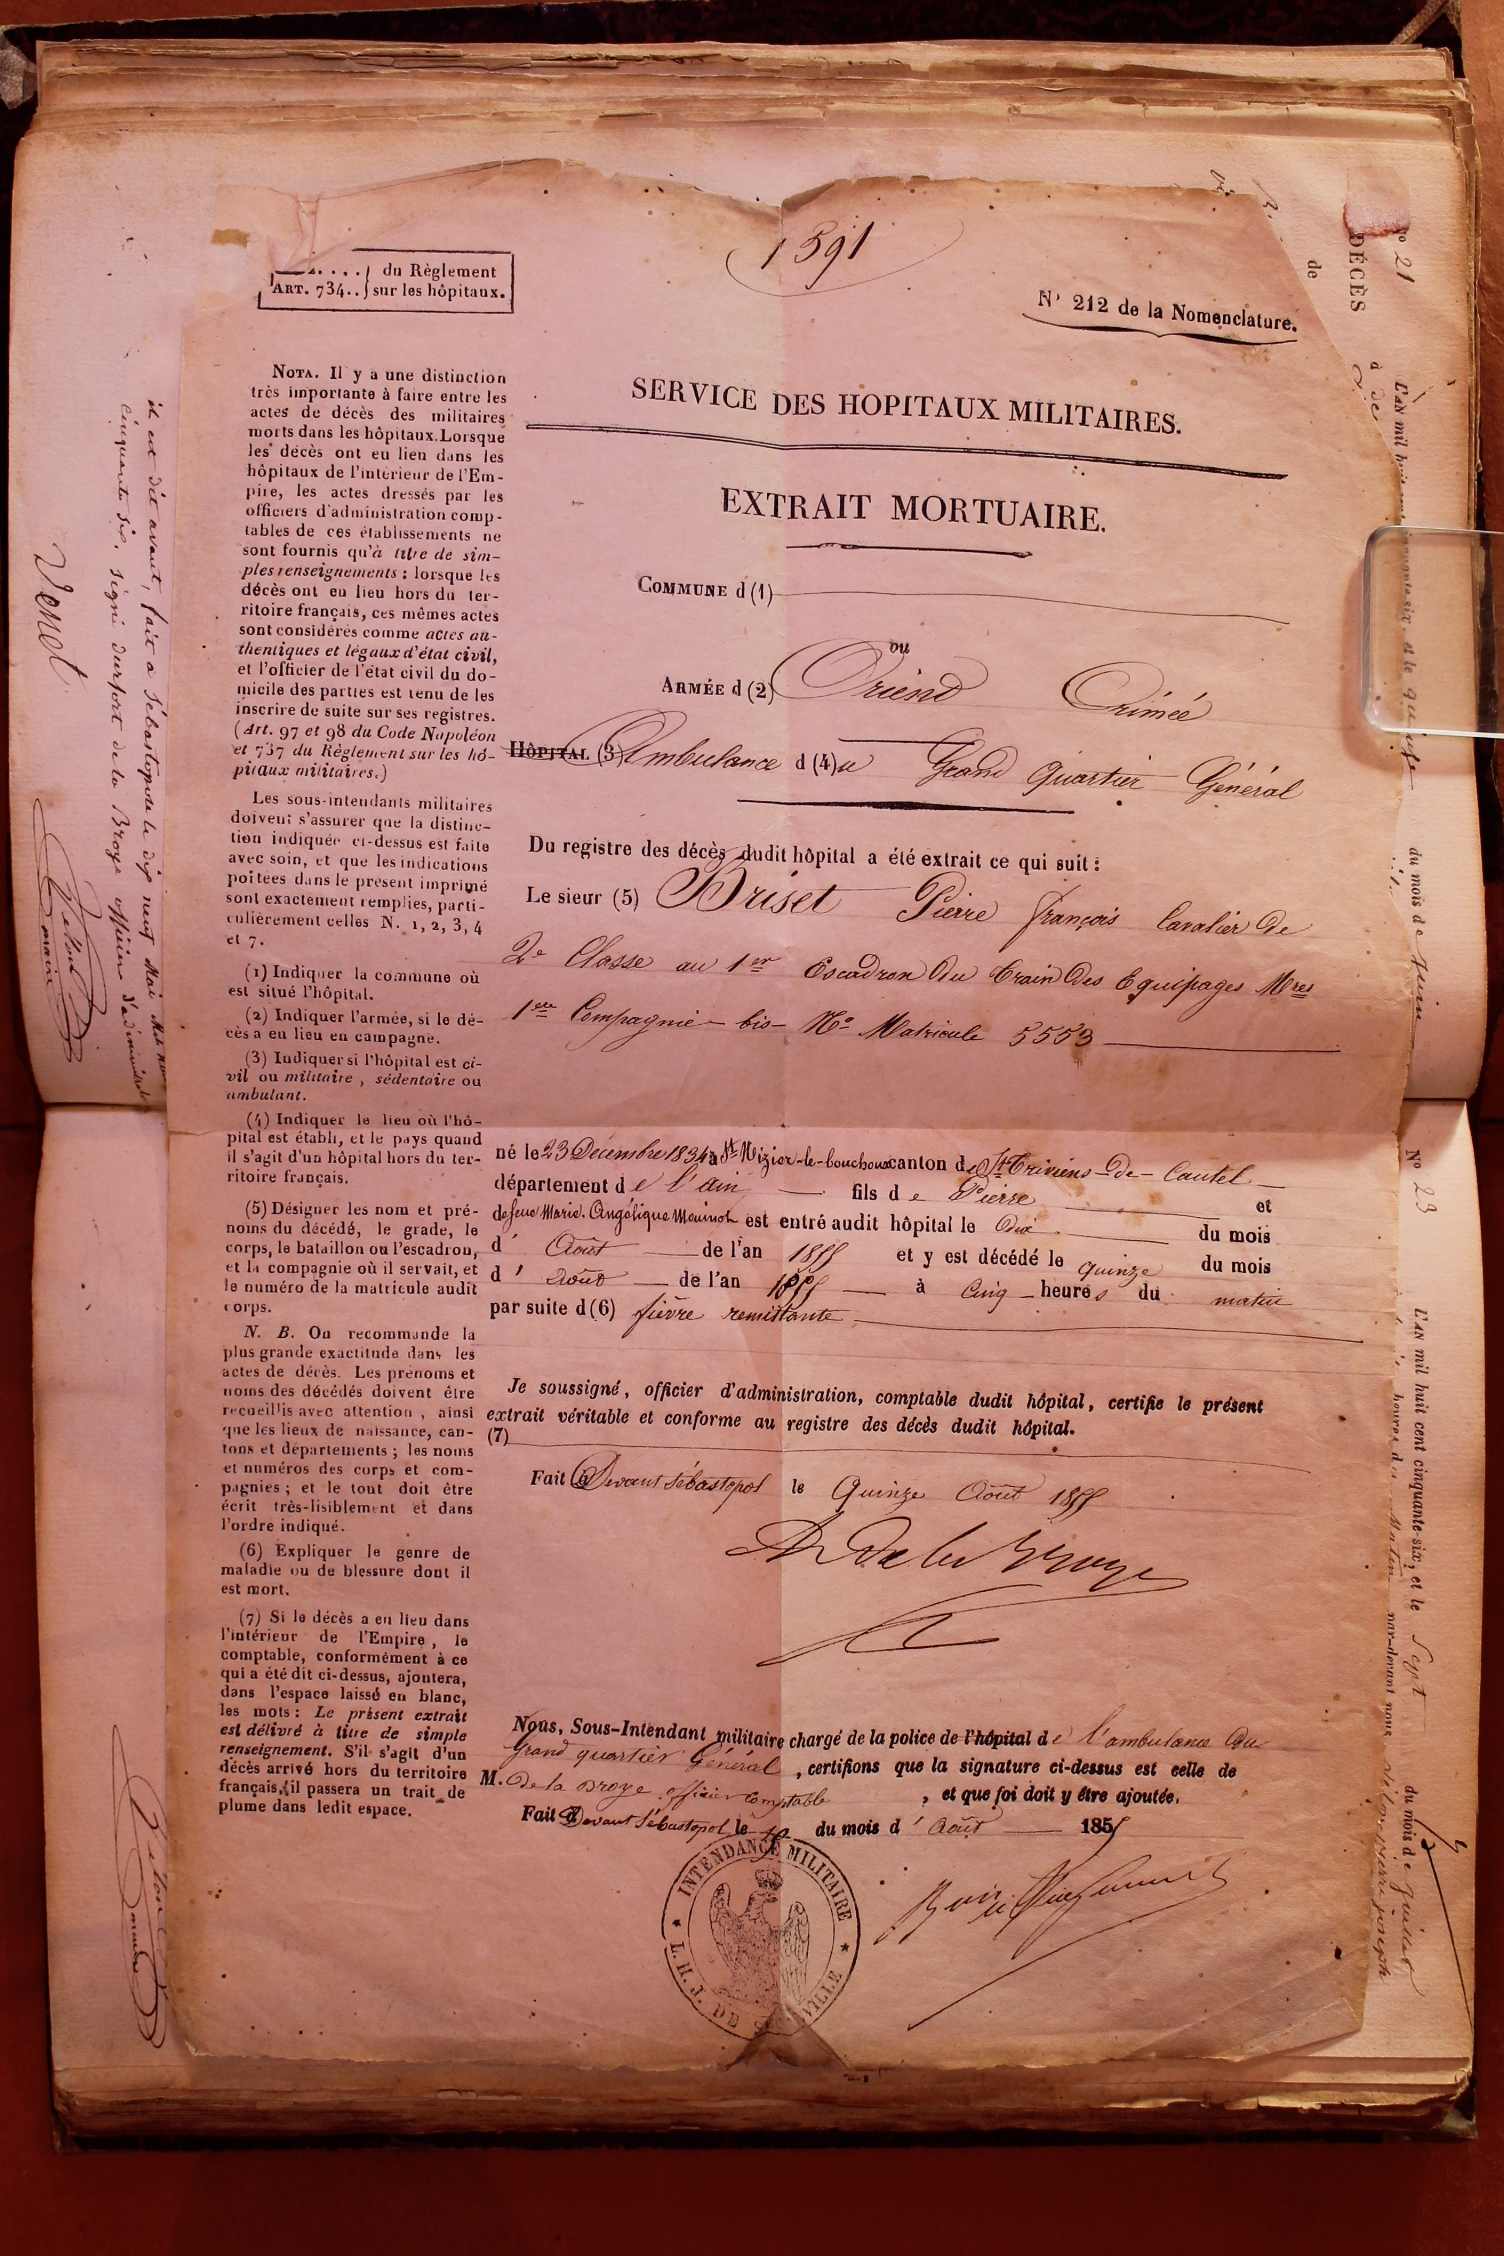 1591
du Règlement
ART. 734.. sur les hôpitaux.
N° 212 de la Nomenclature.
SERVICE DES HOPITAUX MILITAIRES.
EXTRAIT MORTUAIRE.
COMMUNE d (1)
ou
ARMÉE d (2) Orient Crimée
HÔPITAL (3) Ambulance d (4) u Grand Quartier Général
Du registre des décès dudit hôpital a été extrait ce qui suit :
Le sieur (5) Briset Pierre François Cavalier De
2e Classe au 1er Escadron Du Train Des Equipages Mres
1ere Compagnie bis N° Matricule 5553
né le 23 Décembre 1834 à St Nizier-le-bouchoux canton de St Triviens-De-Courtel
département de l'ain fils de Pierre et
de feue Marie Angélique est entré audit hôpital le dix du mois
d' Août de l'an 1855 et y est décédé le quinze du mois
d' Août de l'an 1855 à Cinq heures du matin
par suite d (6) fièvre remittante
Je soussigné, officier d'administration, comptable dudit hôpital, certifie le présent
extrait véritable et conforme au registre des décès dudit hôpital.
(7)
Fait à Devant Sébastopol le Quinze Août 1855
De la Broye
Nous, Sous-Intendant militaire chargé de la police de l'hôpital de l'ambulance Du
Grand quartier Général, certifions que la signature ci-dessus est celle de
M. De la Broye officier comptable, et que foi doit y être ajoutée.
Fait à Devant Sébastopol le du mois d' Août 1855
INTENDANCE MILITAIRE
NOTA. Il y a une distinction
très importante à faire entre les
actes de décès des militaires
morts dans les hôpitaux. Lorsque
les décès ont eu lieu dans les
hôpitaux de l'intérieur de l'Em-
pire, les actes dressés par les
officiers d'administration comp-
tables de ces établissements ne
sont fournis qu'à titre de sim-
ples renseignements : lorsque les
décès ont eu lieu hors du ter-
ritoire français, ces mêmes actes
sont considérés comme actes au-
thentiques et légaux d'état civil,
et l'officier de l'état civil du do-
micile des parties est tenu de les
inscrire de suite sur ses registres.
(Art. 97 et 98 du Code Napoléon
et 737 du Règlement sur les hô-
pitaux militaires.)
Les sous-intendants militaires
doivent s'assurer que la distinc-
tion indiquée ci-dessus est faite
avec soin, et que les indications
portées dans le présent imprimé
sont exactement remplies, parti-
culièrement celles N. 1, 2, 3, 4
et 7.
(1) Indiquer la commune où
est situé l'hôpital.
(2) Indiquer l'armée, si le dé-
cès a eu lieu en campagne.
(3) Indiquer si l'hôpital est ci-
vil ou militaire, sédentaire ou
ambulant.
(4) Indiquer le lieu où l'hô-
pital est établi, et le pays quand
il s'agit d'un hôpital hors du ter-
ritoire français.
(5) Désigner les nom et pré-
noms du décédé, le grade, le
corps, le bataillon ou l'escadron,
et la compagnie où il servait, et
le numéro de la matricule audit
corps.
N. B. On recommande la
plus grande exactitude dans les
actes de décès. Les prénoms et
noms des décédés doivent être
recueillis avec attention, ainsi
que les lieux de naissance, can-
tons et départements ; les noms
et numéros des corps et com-
pagnies ; et le tout doit être
écrit très-lisiblement et dans
l'ordre indiqué.
(6) Expliquer le genre de
maladie ou de blessure dont il
est mort.
(7) Si le décès a eu lieu dans
l'intérieur de l'Empire, le
comptable, conformément à ce
qui a été dit ci-dessus, ajoutera,
dans l'espace laissé en blanc,
les mots : Le présent extrait
est délivré à titre de simple
renseignement. S'il s'agit d'un
décès arrivé hors du territoire
français, il passera un trait de
plume dans ledit espace.
il est dit avant, fait a Sébastopol le dix neuf Mai Mil
Cinquante six. signé durfort de la Broye officier d'administ
Venet
maire
maire
N° 21
DÉCÈS
de
à
de
L'AN mil
et le quinze
du mois de juin
N° 23
L'AN mil huit cent cinquante-six, et le Sept du mois de juillet
heures du Matin par-devant nous pierre joseph